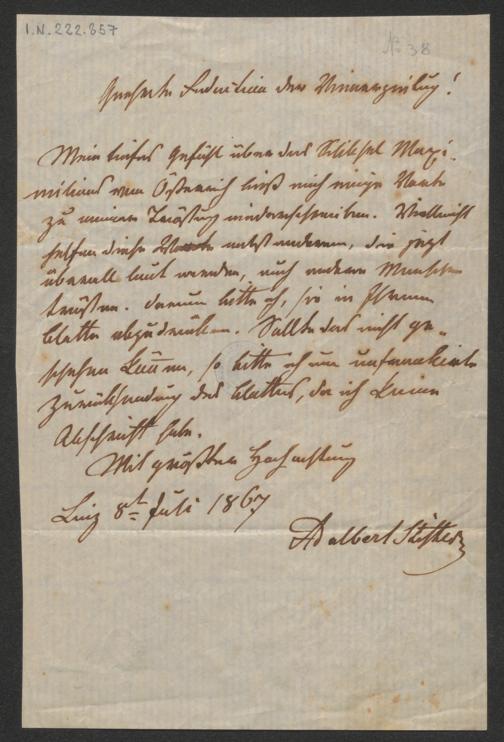 I.N. 222.857
№ 38
Geehrte Redaction der Wienerzeitung!
Mein tiefes Gefühl über das Schiksal Maxi-
milians von Östreich ließ mich einige Worte
zu meiner Tröstung niederschreiben. Vielleicht
helfen diese Worte nebst anderen, die jezt
überall laut werden, auch andere Menschen
trösten. Darum bitte ich, sie in Ihrem
Blatte abzudruken. Sollte das nicht ge-
schehen können, so bitte ich um unfrankirte
Zurüksendung des Blattes, da ich keine
Abschrift habe.
Mit größter Hochachtung
Linz 8t Juli 1867
Adalbert Stifter